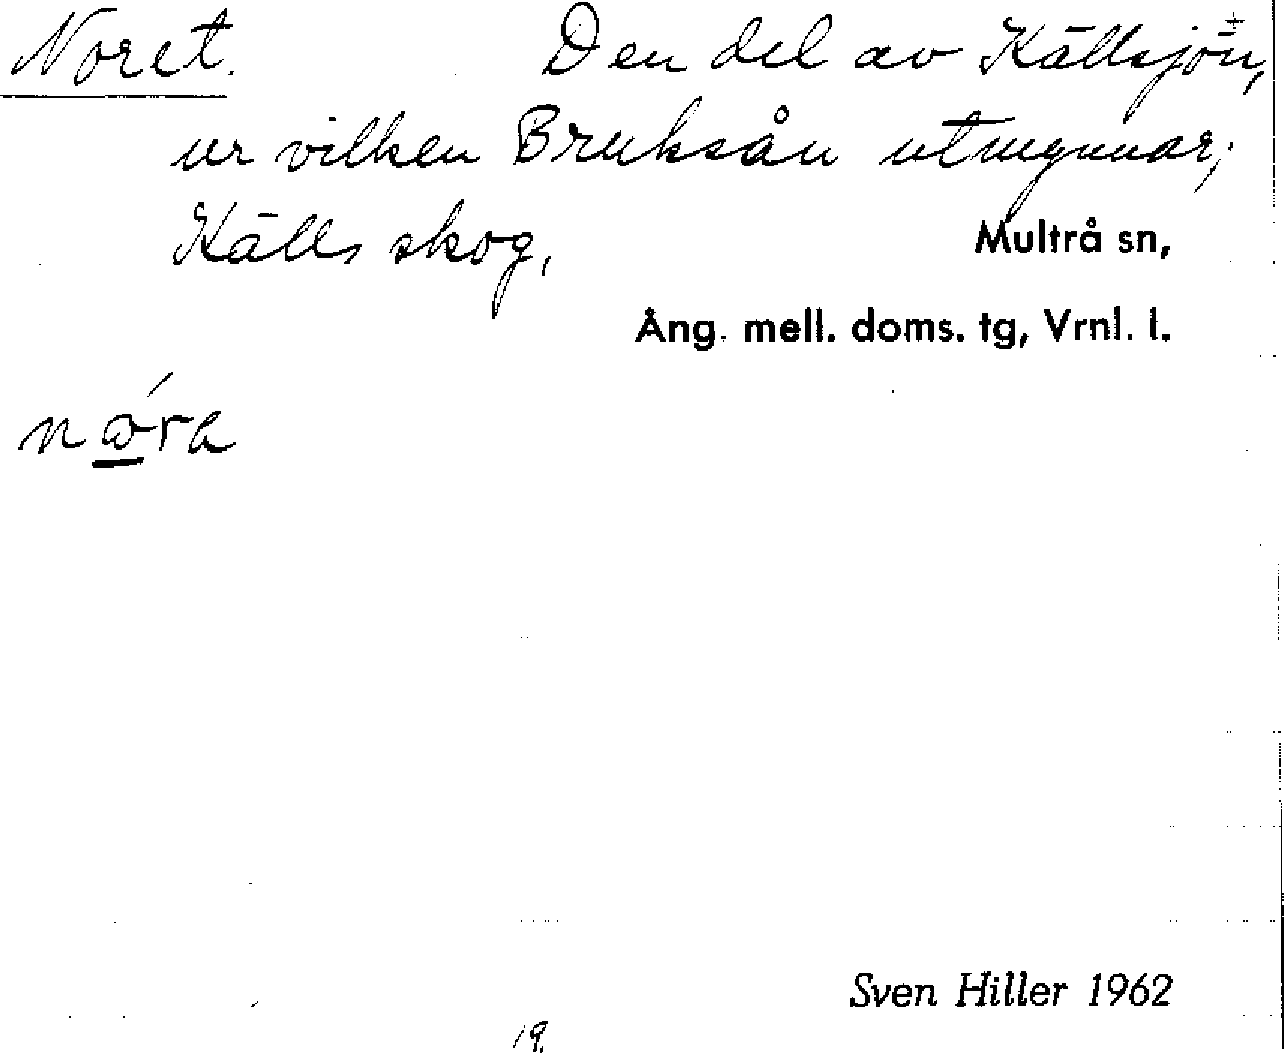 Noret. Den del av Källsjön,
ur vilken Bruksån utmynnar;
Källs skog, Multrå sn,
Ång. mell. doms. tg, Vrnl. l.
Sven Hiller 1962
19.